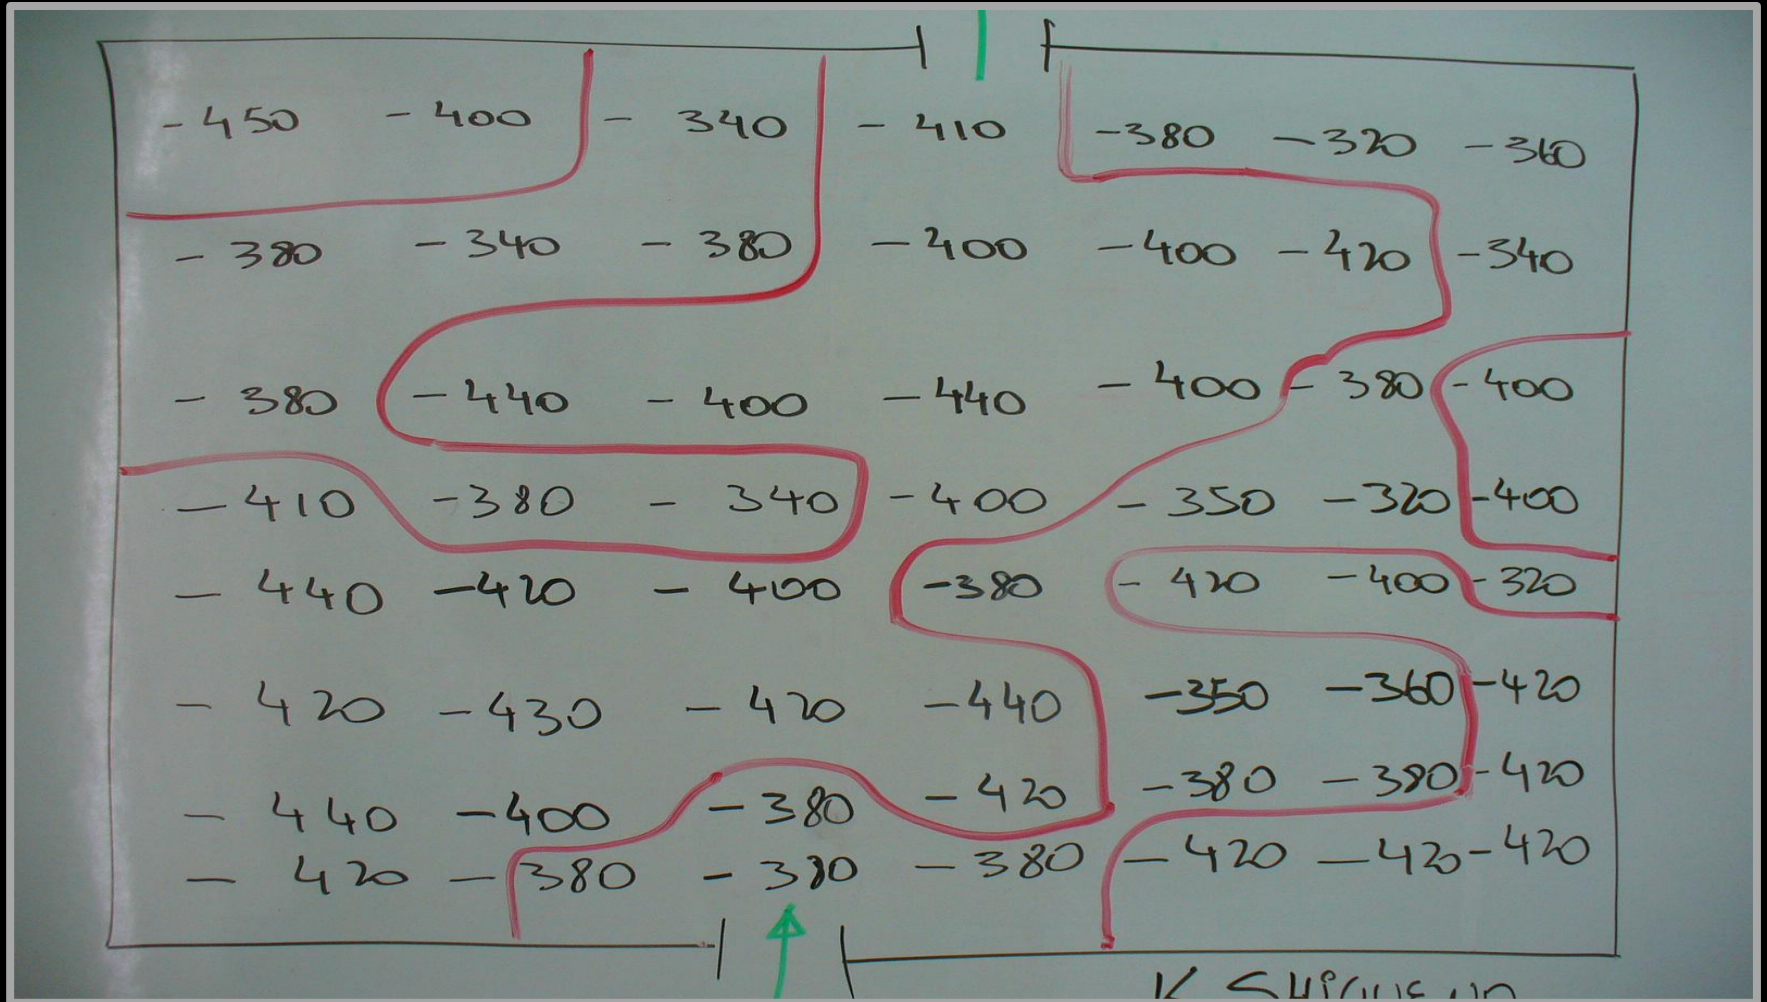 - 450 - 400 - 340 - 410 -380 -320 -360
- 380 - 340 - 380 - 400 - 400 - 420 - 340
- 380 - 440 - 400 - 440 - 400 - 380 - 400
- 410 - 380 - 340 - 400 - 350 - 320 - 400
- 440 - 420 - 400 - 380 - 420 - 400 - 320
- 420 - 430 - 420 - 440 - 350 - 360 - 420
- 440 - 400 - 380 - 420 - 380 - 380 - 420
- 420 - 380 - 380 - 380 - 420 - 420 - 420